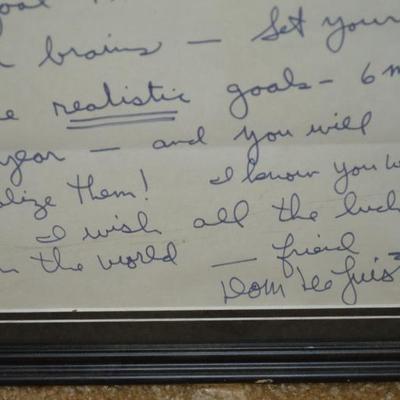 brains — Set your
realistic goals — 6 m
year — and you will
alize them! I know you w
I wish all the luck
in the world — friend
Dom De Luis